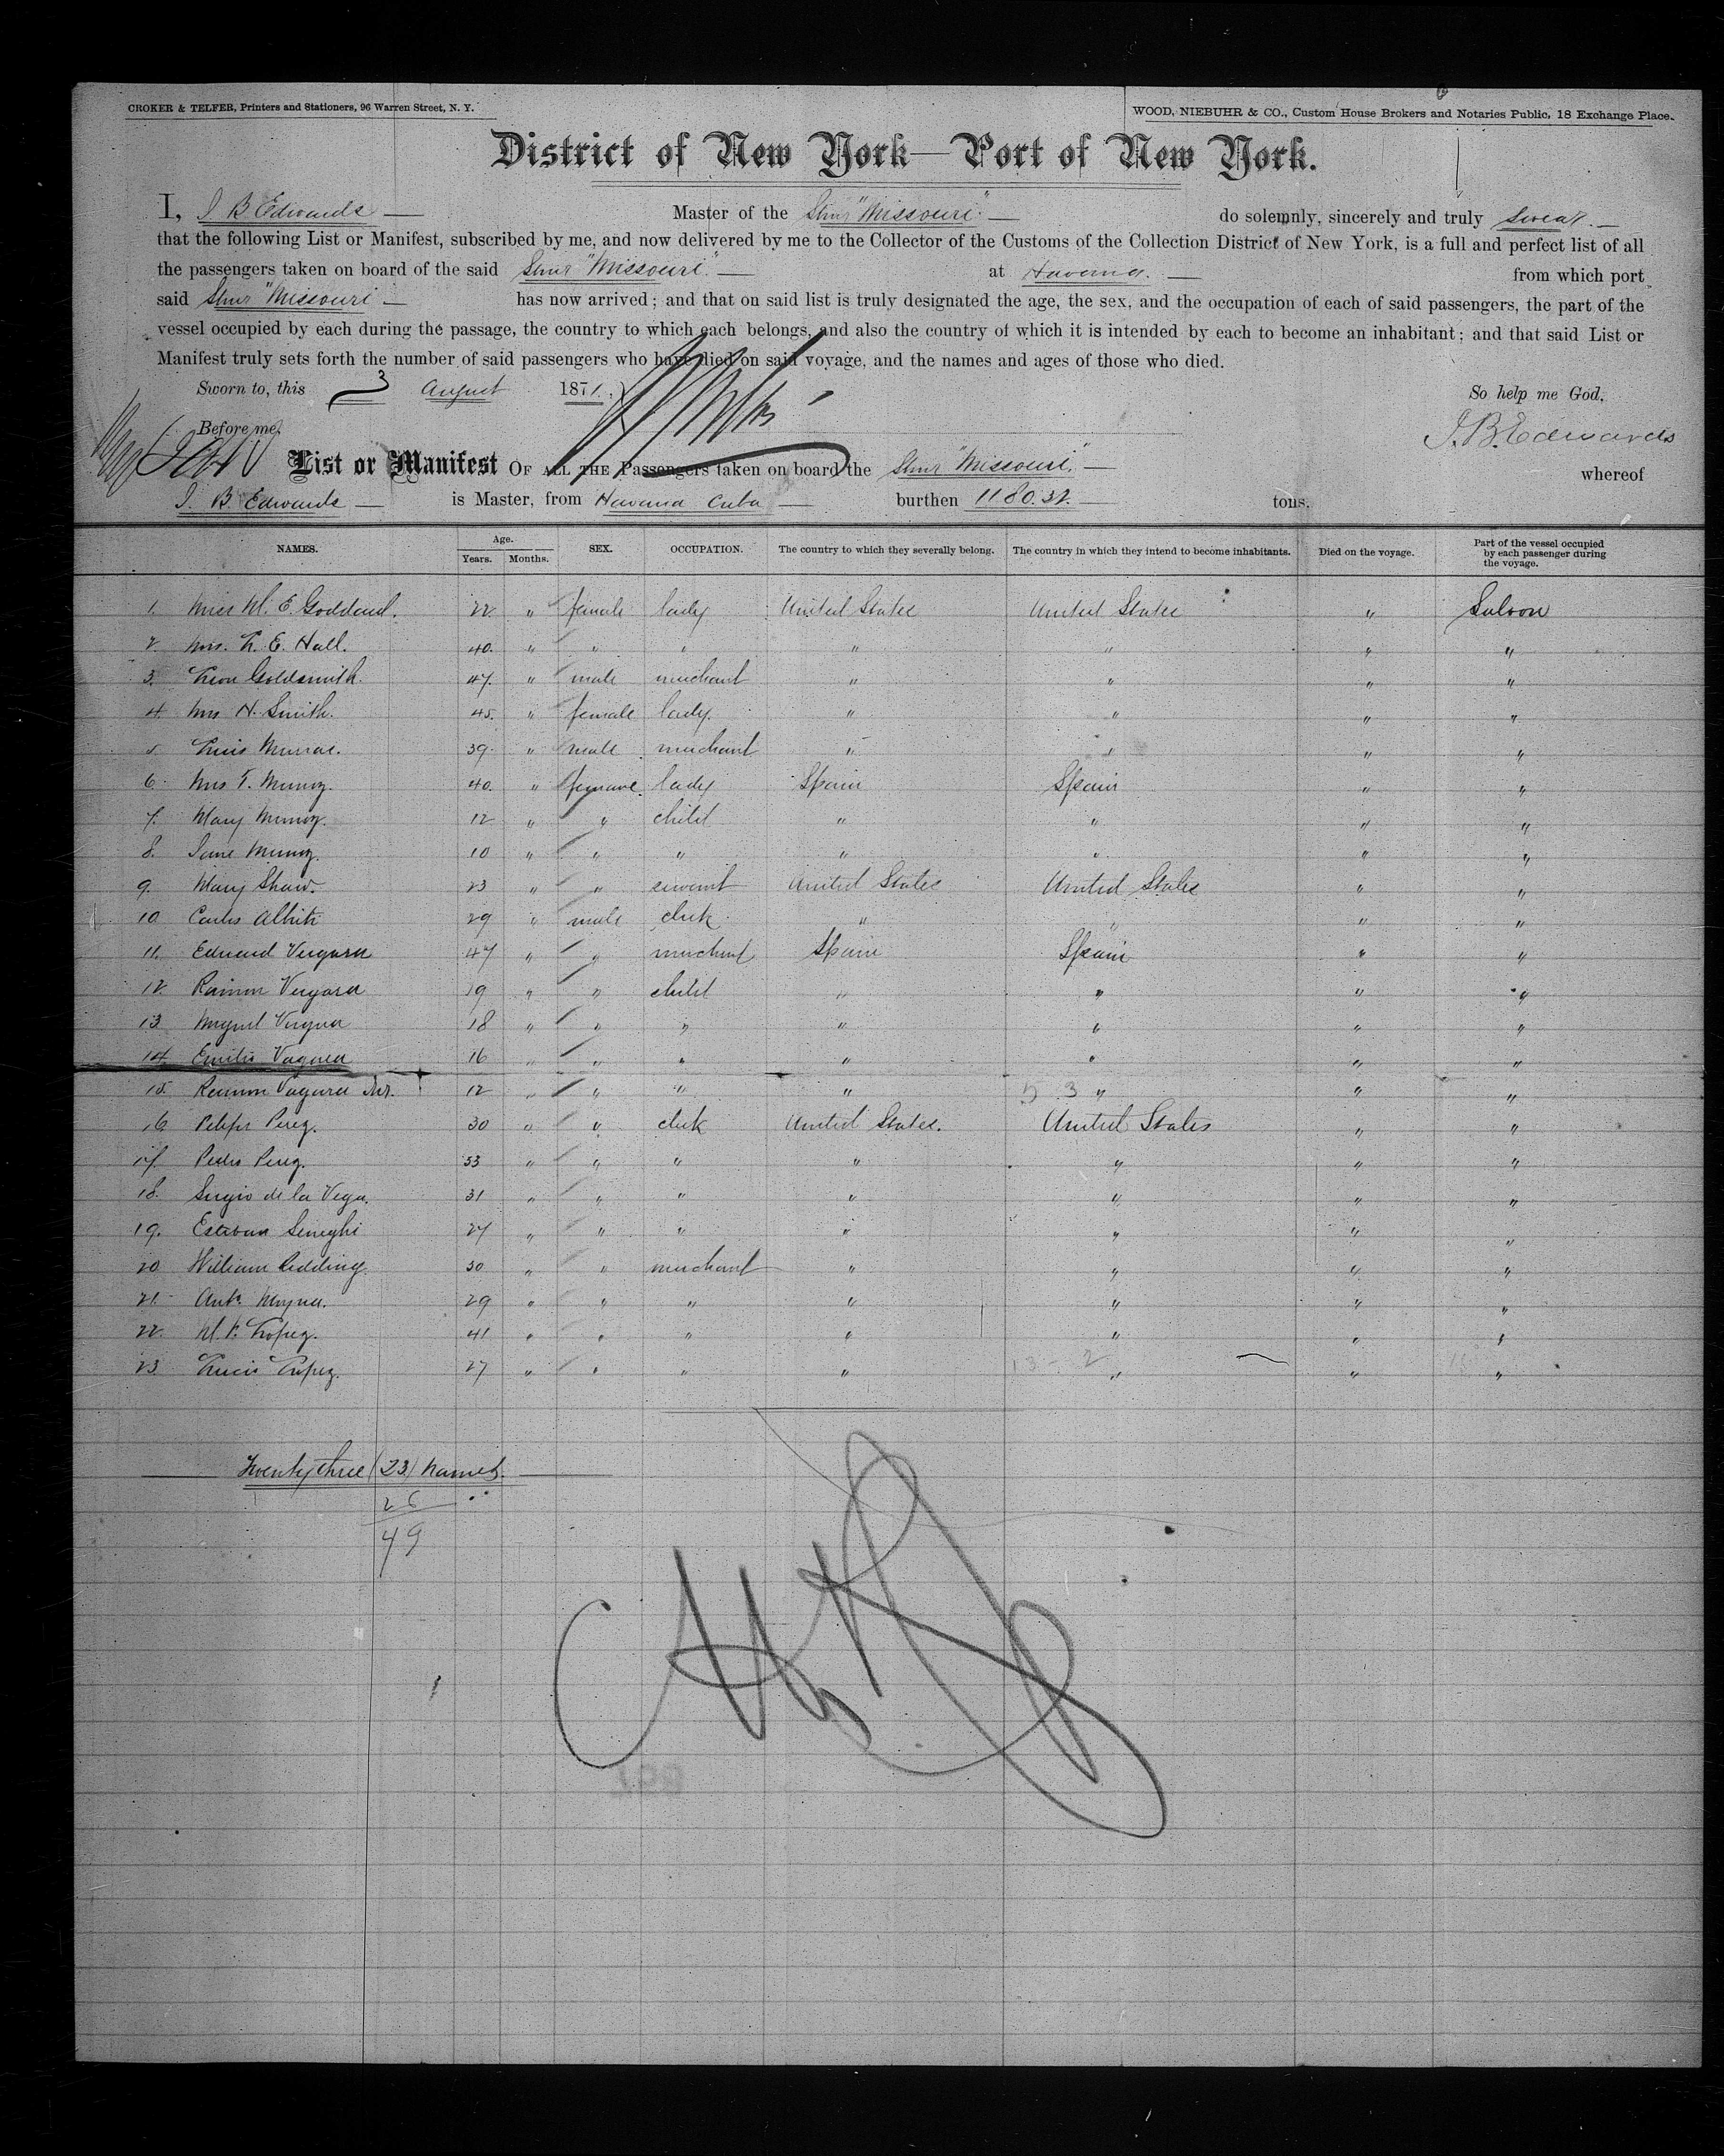 CROKER & TELFER, Printers and Stationers, 96 Warren Street, N. Y.
WOOD, NIEBUHR & CO., Custom House Brokers and Notaries Public, 18 Exchange Place.
District of New York—Port of New York.
I, J B Edwards — Master of the Stmr "Missouri" — do solemnly, sincerely and truly swear. —
that the following List or Manifest, subscribed by me, and now delivered by me to the Collector of the Customs of the Collection District of New York, is a full and perfect list of all
the passengers taken on board of the said Stmr "Missouri". — at Havana. — from which port
said Stmr "Missouri — has now arrived; and that on said list is truly designated the age, the sex, and the occupation of each of said passengers, the part of the
vessel occupied by each during the passage, the country to which each belongs, and also the country of which it is intended by each to become an inhabitant; and that said List or
Manifest truly sets forth the number of said passengers who have died on said voyage, and the names and ages of those who died.
Sworn to, this 3 August 1871. So help me God,
Before me, J. B. Edwards
List or Manifest OF ALL THE Passengers taken on board the Stmr "Missouri". — whereof
J. B. Edwards — is Master, from Havana Cuba — burthen 1180.32. — tons.
NAMES. Age. Years. Months. SEX. OCCUPATION. The country to which they severally belong. The country in which they intend to become inhabitants. Died on the voyage. Part of the vessel occupied by each passenger during the voyage.
1. Miss M. E. Goddard. 22. " female lady United States United States " Saloon
2. Mrs. L. E. Hall. 40. " " " " " " "
3. Leon Goldsmith. 47. " male merchant " " " "
4. Mrs H. Smith. 45. " female lady. " " " "
5. Luis 39. " male merchant " " " "
6. Mrs F. Munoz. 40. " female. lady Spain Spain " "
7. Mary Munoz. 12 " " child " " " "
8. Jane Munoz. 10 " " " " " " "
9. Mary Shaw. 23 " " servant United States United States " "
10 Carlos 29 " male clerk " " " "
11. Edward Vergara 47 " " merchant Spain Spain " "
12. Ramon Vergara 19 " " child " " " "
13. Miguel Vergara 18 " " " " " " "
14. Emilio Vagara 16 " " " " " " "
15. Ramon Vagara 12 " " " " 3 " " "
16 Perez. 30 " " clerk United States. United States " "
17. Pedro Perez. 33 " " " " " " "
18. Sergio de la Vega. 31 " " " " " " "
19. Esteban 27 " " " " " " "
20 William Redding. 30 " " merchant " " " "
21. Anto. 29 " " " " " " "
22. Lopez. 41 " " " " " " "
23. Lopez. 27 " " " " 13 - 2 " " "
Twenty three (23) names.
26
49